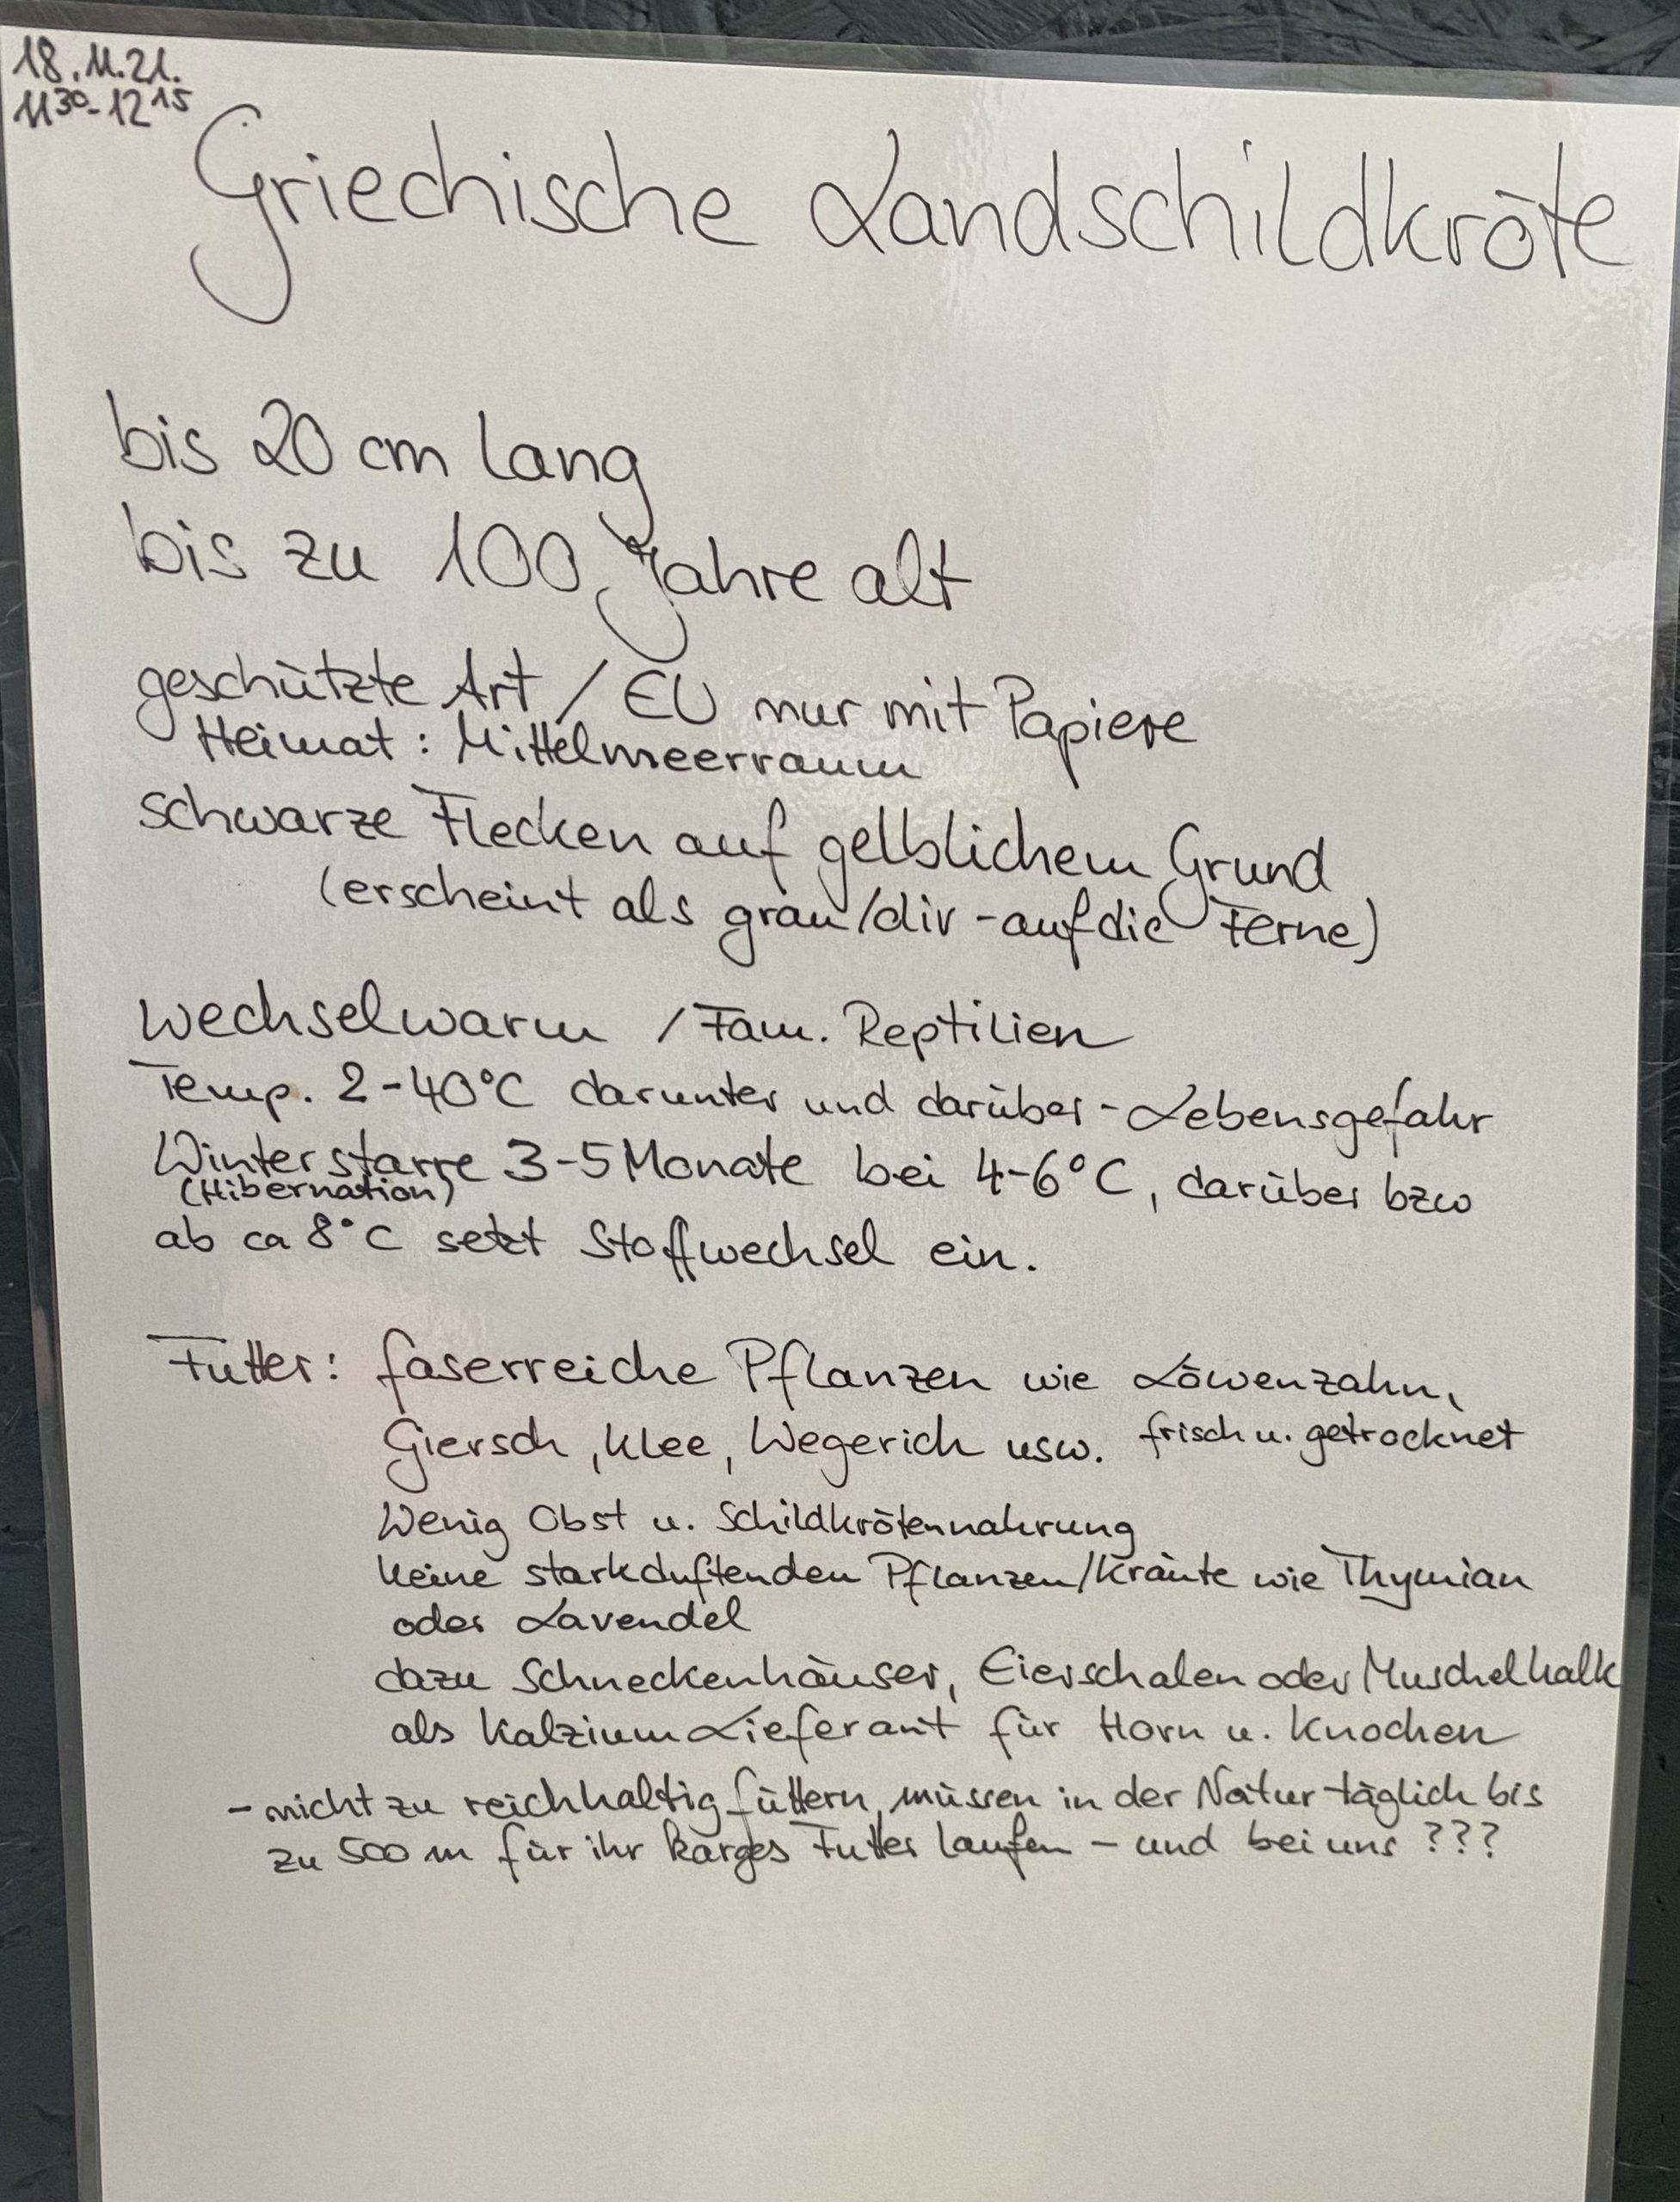 18.11.21.
11³⁰-12¹⁵
Griechische Landschildkröte
bis 20 cm lang
bis zu 100 Jahre alt
geschützte Art / EU nur mit Papiere
Heimat: Mittelmeerraum
schwarze Flecken auf gelblichem Grund
(erscheint als grau/div - auf die Ferne)
Wechselwarm / Fam. Reptilien
Temp. 2-40°C darunter und darüber - Lebensgefahr
Winterstarre 3-5 Monate bei 4-6°C, darüber bzw
(Hibernation)
ab ca 8°C setzt Stoffwechsel ein.
Futter: faserreiche Pflanzen wie Löwenzahn,
Giersch, Klee, Wegerich usw. frisch u. getrocknet
Wenig Obst u. Schildkrötennahrung
keine starkduftenden Pflanzen/Kräute wie Thymian
oder Lavendel
dazu Schneckenhäuser, Eierschalen oder Muschelkalk
als Kalzium Lieferant für Horn u. Knochen
- nicht zu reichhaltig füttern, müssen in der Natur täglich bis
zu 500 m für ihr karges Futter laufen - und bei uns ???